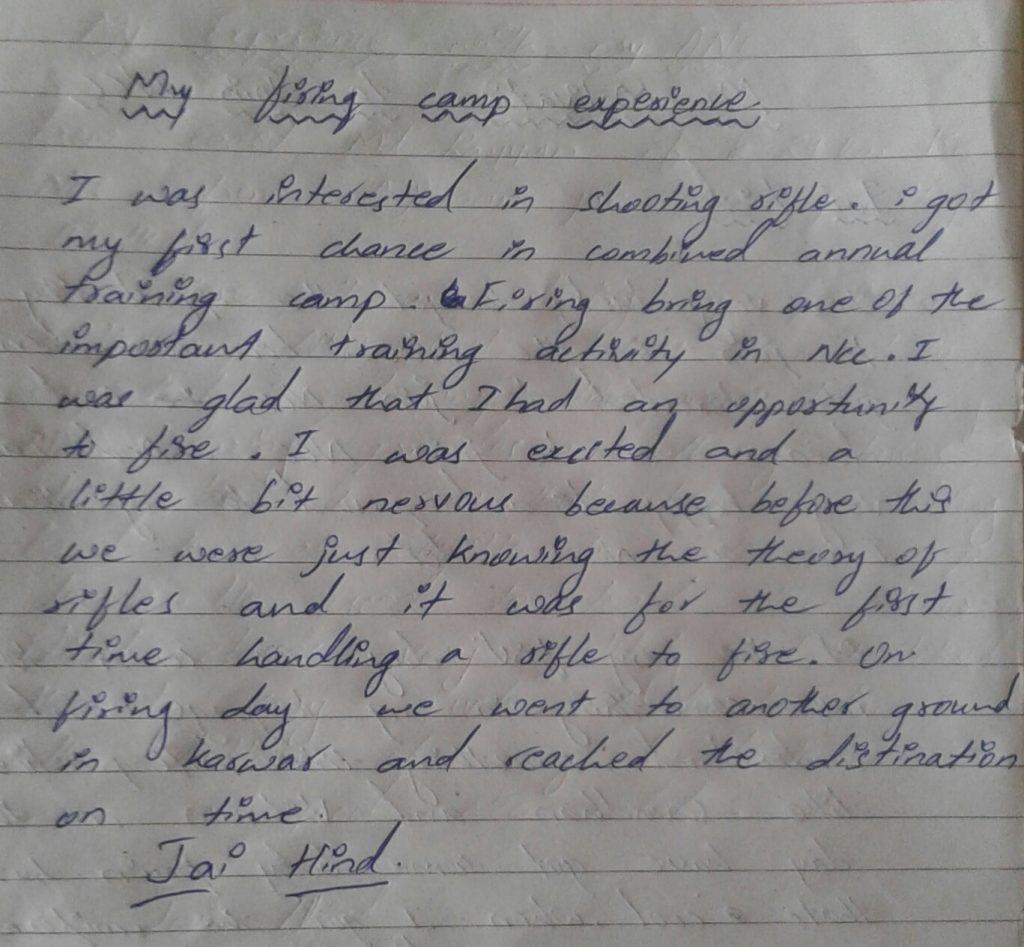 My firing camp experience
I was interested in shooting rifle. i got
my first chance in combined annual
training camp. Firing bring one of the
important training activity in Ncc. I
was glad that I had an opportunity
to fire. I was excited and a
little bit nervous because before this
we were just knowing the theory of
rifles and it was for the first
time handling a rifle to fire. On
firing day we went to another ground
in karwar and reached the distination
on time.
Jai Hind.